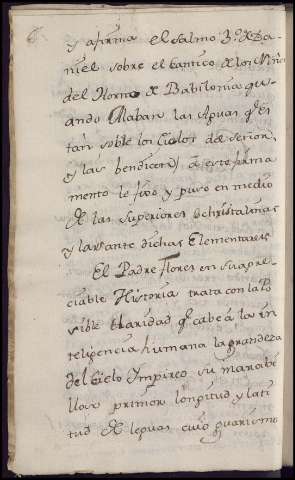 6
y afirma el salmo 3º. de Da-
niel sobre el cantico de los Niños
del Horno de Babilonia qu-
ando Alaban las Aguas q.e es
tan sobre los Cielos del señor
y las bendicen) a este firma
mento le fixo y puso en medio
de las superiores o christalinas
y las ante dichas Elementares
El Padre Flores en su apre-
ciable Historia trata con la Po
sible claridad q.e cabe á la in
teligencia humana la grandeza
del Cielo Ympireo su marabi
lloso primor longitud y lati
tud de leguas cuio guarismo